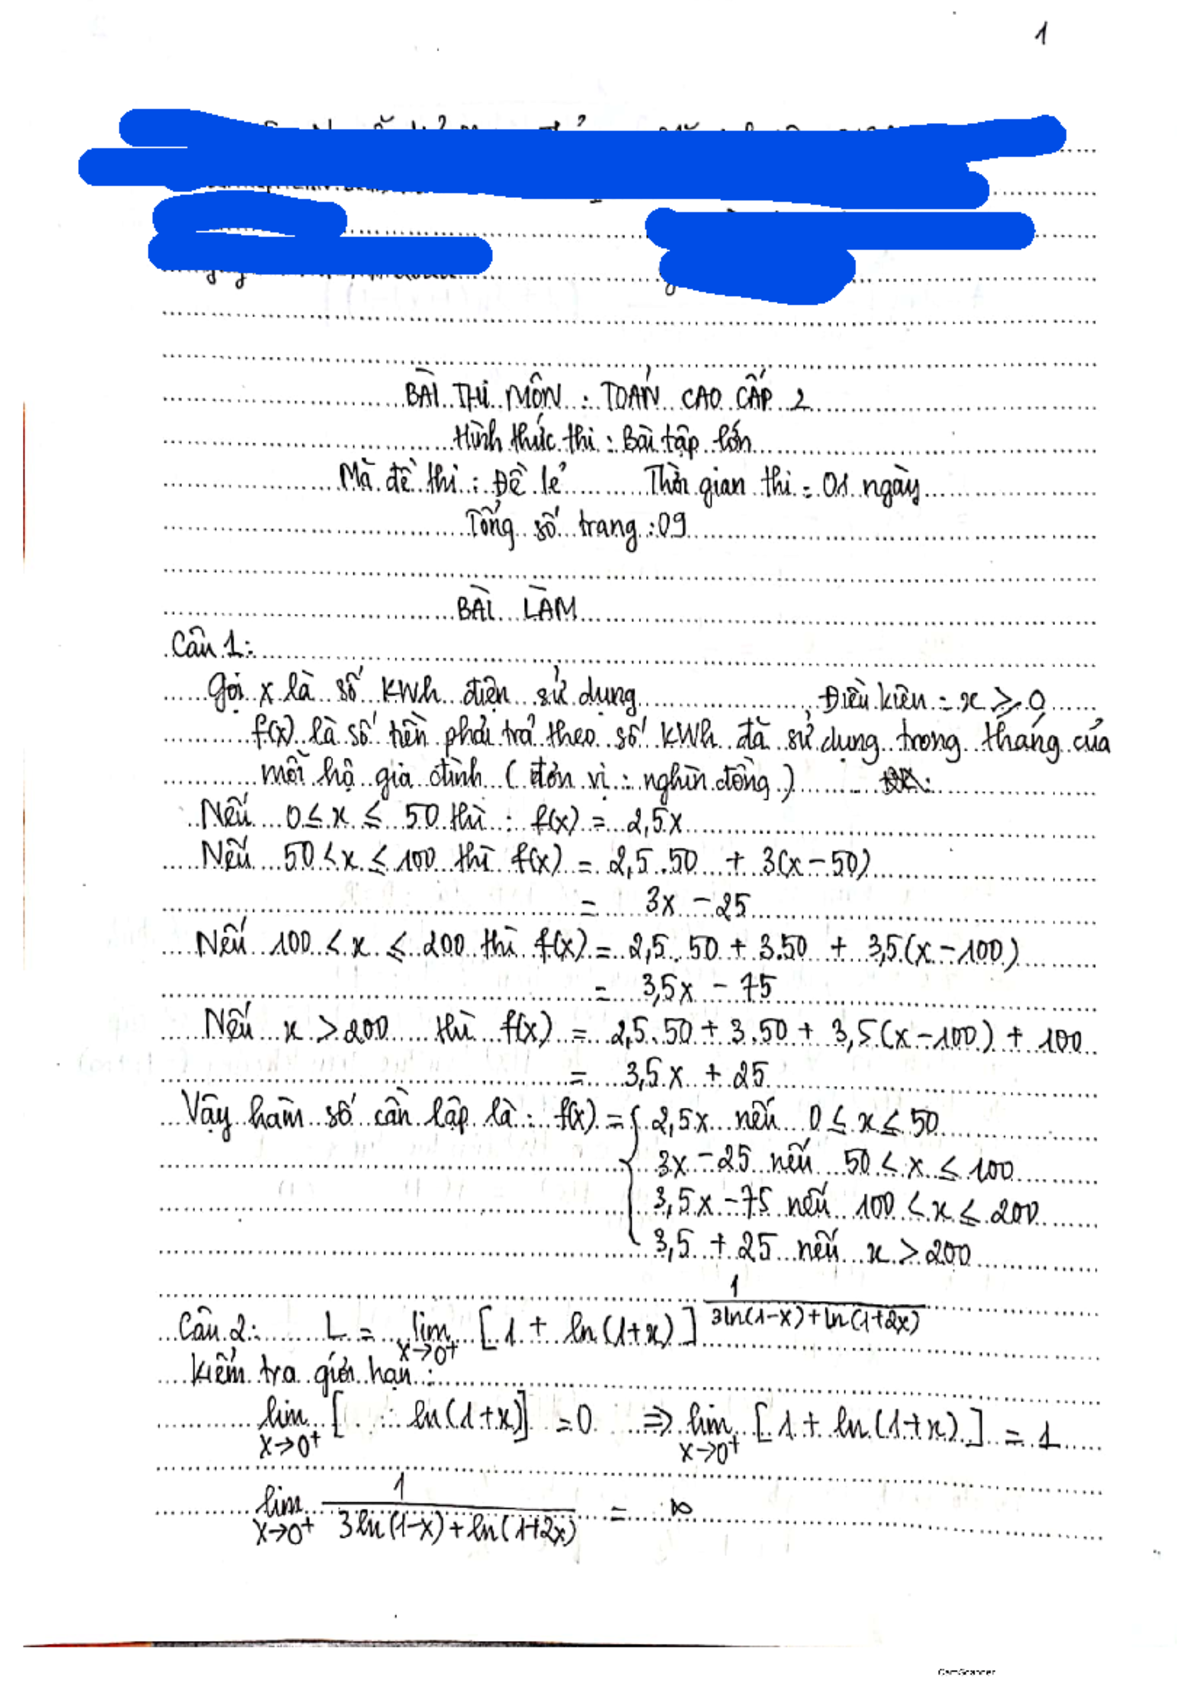 1
BÀI THI MÔN : TOÁN CAO CẤP 2
Hình thức thi : Bài tập lớn
Mã đề thi : Đề lẻ Thời gian thi : 01 ngày
Tổng số trang : 09
BÀI LÀM
Câu 1 :
Gọi x là số KWh điện sử dụng , Điều kiện : x ≥ 0
f(x) là số tiền phải trả theo số KWh đã sử dụng trong tháng của
mỗi hộ gia đình ( đơn vị : nghìn đồng )
Nếu 0 ≤ x ≤ 50 thì : f(x) = 2,5x
Nếu 50 < x ≤ 100 thì f(x) = 2,5.50 + 3(x - 50)
= 3x - 25
Nếu 100 < x ≤ 200 thì f(x) = 2,5.50 + 3.50 + 3,5(x - 100)
= 3,5x - 75
Nếu x > 200 thì f(x) = 2,5.50 + 3.50 + 3,5(x - 100) + 100
= 3,5x + 25
Vậy hàm số cần lập là : f(x) = { 2,5x nếu 0 ≤ x ≤ 50
3x - 25 nếu 50 < x ≤ 100
3,5x - 75 nếu 100 < x ≤ 200
3,5 + 25 nếu x > 200
Câu 2 : L = lim x→0⁺ [ 1 + ln(1+x) ] 1 / 3ln(1-x)+ln(1+2x)
Kiểm tra giới hạn :
lim x→0⁺ [ ln(1+x)] = 0 ⇒ lim x→0⁺ [ 1 + ln(1+x) ] = 1
lim x→0⁺ 1 / 3ln(1-x)+ln(1+2x) = ∞
CamScanner